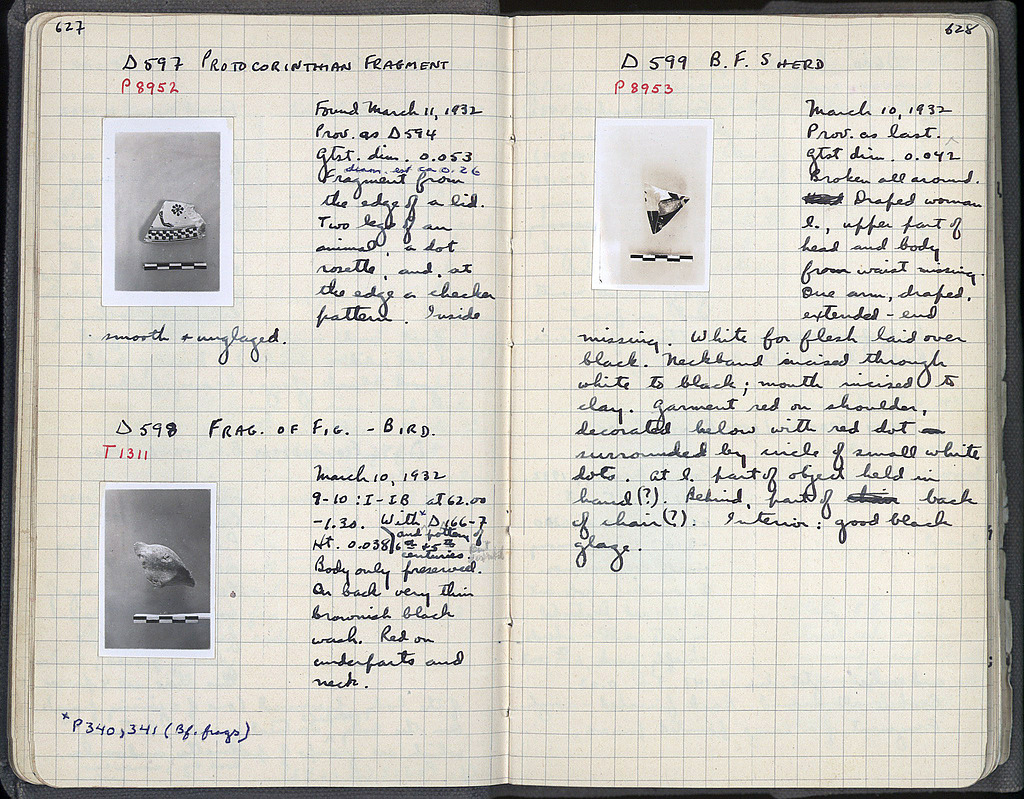 627
D 597 PROTOCORINTHIAN FRAGMENT
P 8952
Found March 11, 1932
Prov. as D 594
Gtst. dim. 0.053
diam. est ca 0.26
Fragment from
the edge of a lid.
Two legs of an
animal, a dot
rosette, and, at
the edge a checker
pattern. Inside
smooth + unglazed.
D 598 FRAG. OF FIG. - BIRD.
T 1311
March 10, 1932
9-10 : I-IB at 62.00
-1.30. With* D 166-7
and pottery of
Ht. 0.038 6th + 5th
centuries.
Body only preserved.
On back very thin
brownish black
wash. Red on
underparts and
neck.
*P 340, 341 (Bf. frags)
628
D 599 B.F. SHERD
P 8953
March 10, 1932
Prov. as last.
Gtst dim. 0.042
Broken all around.
Draped woman
l., upper part of
head and body
from waist missing.
One arm, draped,
extended - end
missing. White for flesh laid over
black. Neckband incised through
white to black; mouth incised to
clay. Garment red on shoulder,
decorated below with red dot
surrounded by circle of small white
dots. At l. part of object held in
hand (?). Behind, part of back
of chair (?). Interior: good black
glaze.